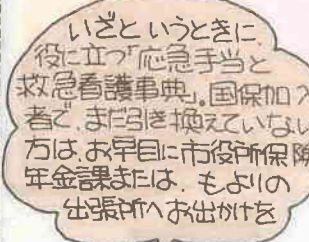 いざというときに、
役に立つ「応急手当と
救急看護事典」。国保加入
者で、まだ引き換えていない
方は、お早目に市役所保険
年金課または、もよりの
出張所へお出かけを